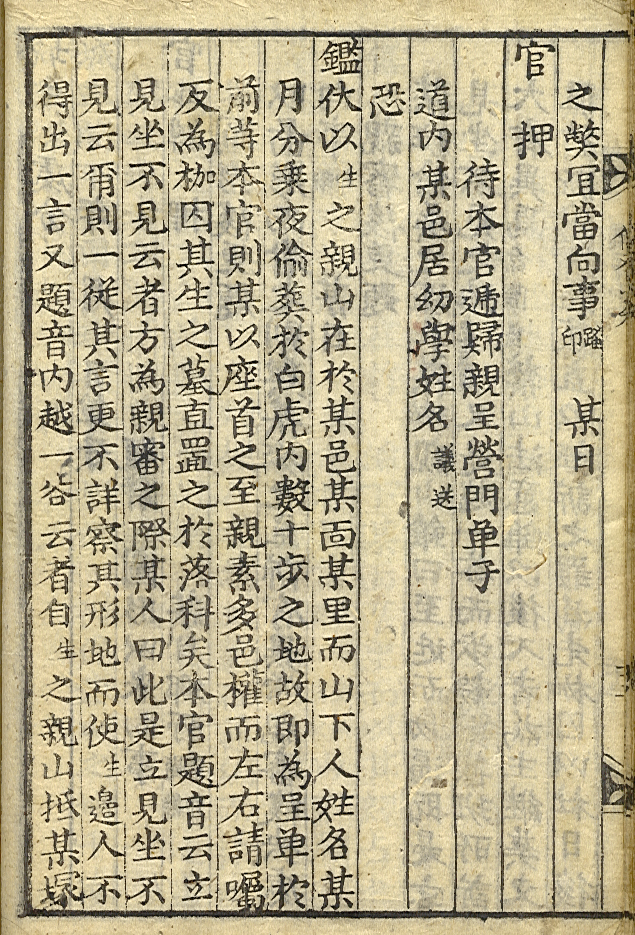 之獘冝當向事 踏印 某日
官 押
待本官遞歸親呈營門单子
道内某邑居幼學姓名 議送
恐
鑑伏以 生 之親山在於某邑某面某里而山下人姓名某
月分乗夜偷葬於白虎内數十步之地故即為呈单於
前等本官則某以座首之至親素多邑權而左右請囑
反為枷囚其生之墓直置之於落科矣本官題音云立
見坐不見云者方為親審之際某人曰此是立見坐不
見云爾則一從其言更不詳察其形地而使 生 邉人不
得出一言又題音内越一谷云者自 生 之親山抵某塚